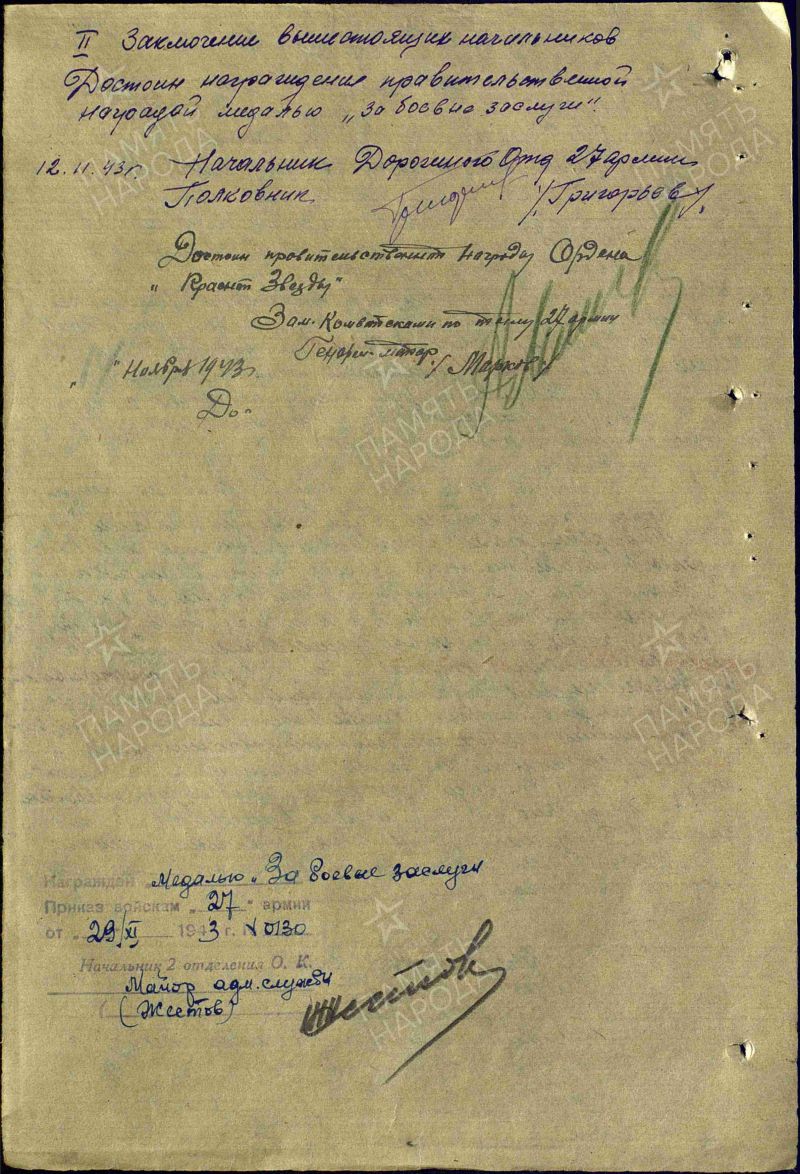 II Заключение вышестоящих начальников
Достоин награждение правительственной
наградой медалью „За боевые заслуги".
12.11.43г. Начальник Дорожного Отд 27 армии
Полковник /Григорьев/.
Достоин правительственной награды Ордена
„Красной Звезды"
Зам. Командующ по тылу 27 армии
Генерал-майор /Марков/
" " Ноября 1943г.
До
Награждён Медалью „За боевые заслуги
Приказ войскам „27" армии
от „29/XI 1943 г. N 0130
Начальник 2 отделения О. К.
Майор адм. службы
(Жестов)
Жестов
ПАМЯТЬ
НАРОДА
ПАМЯТЬ
НАРОДА
ПАМЯТЬ
НАРОДА
ПАМЯТЬ
НАРОДА
ПАМЯТЬ
НАРОДА
ПАМЯТЬ
НАРОДА